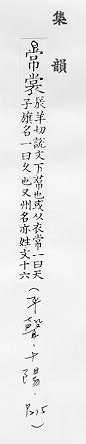 集韻
常裳
辰羊切說文下帬也或从衣常一曰天
子旗名一曰久也又州名亦姓文十六
(平聲·十陽·P.215)